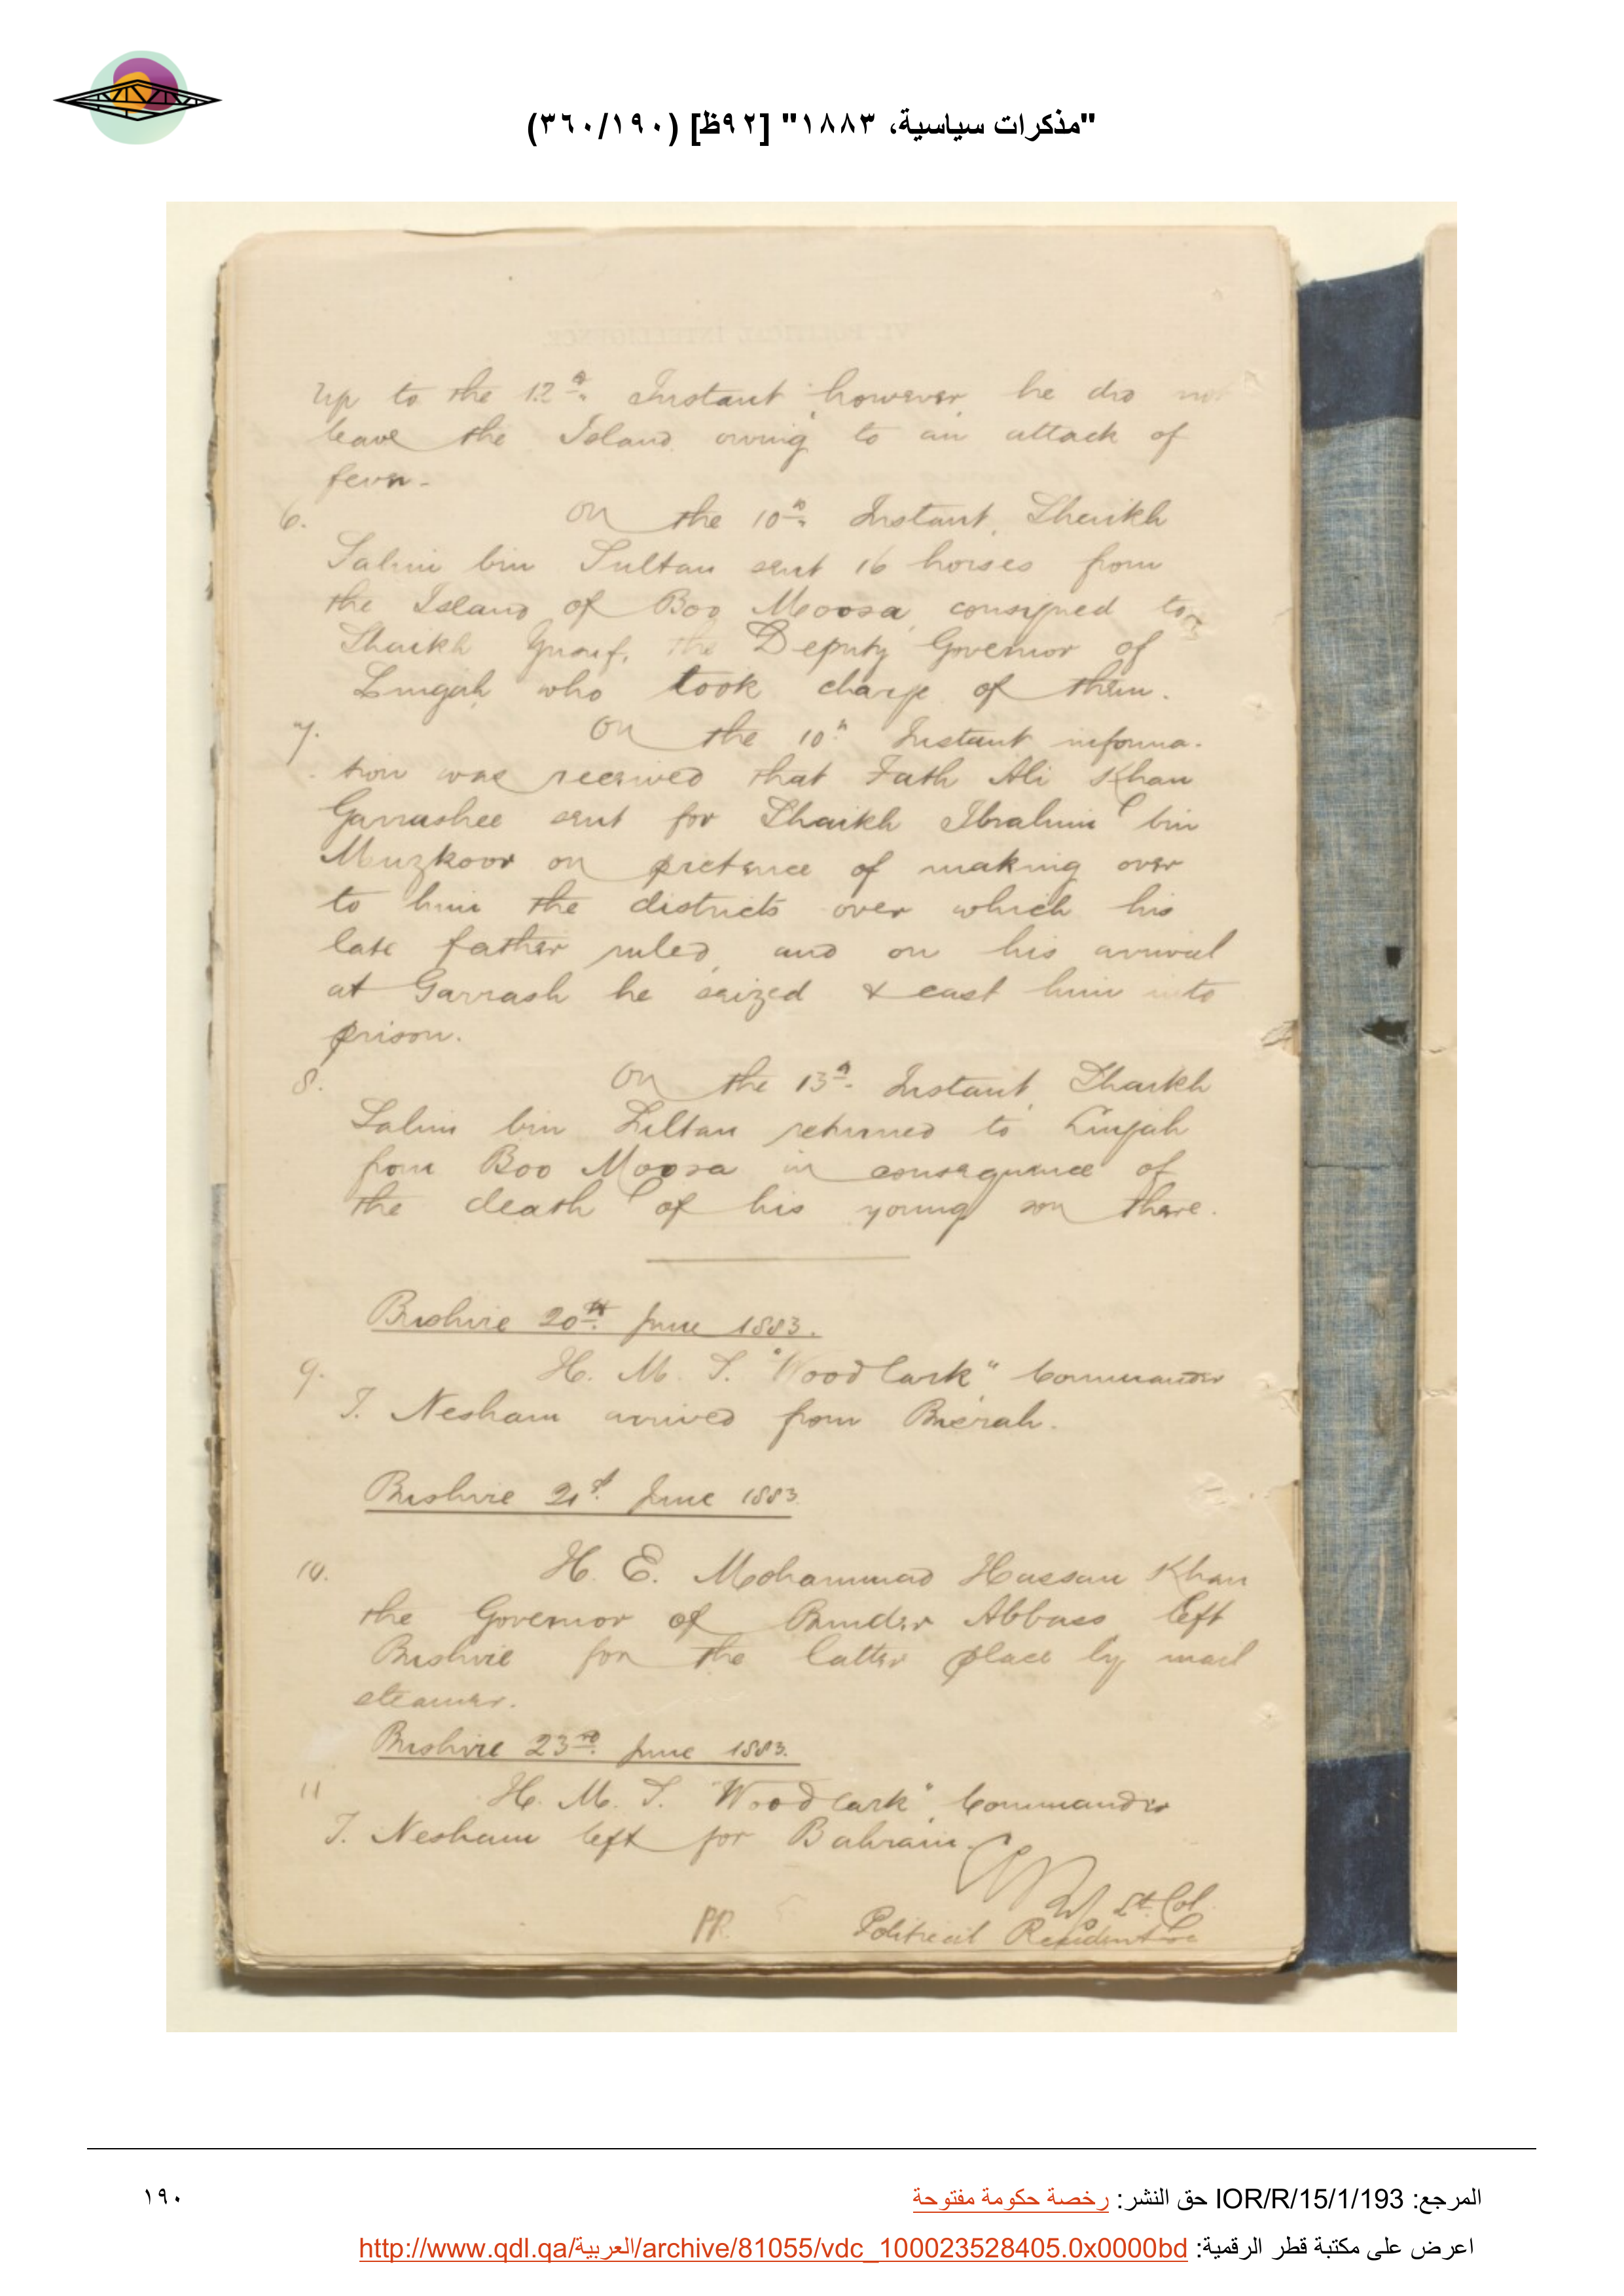 "مذكرات سياسية، ١٨٨٣" [٩٢ظ] (٣٦٠/١٩٠)
Up to the 12th. Instant however he did not
leave the Island owing to an attack of
fever.
6. On the 10th. Instant, Shaikh
Salim bin Sultan sent 16 horses from
the Island of Boo Moosa, consigned to
Shaikh Yusuf, the Deputy Governor of
Lingah, who took charge of them.
7. On the 10th Instant informa-
tion was received that Fath Ali Khan
Garrashee sent for Shaikh Ibrahim bin
Muzkoor on pretence of making over
to him the districts over which his
late father ruled, and on his arrival
at Garrash he seized & cast him into
prison.
8. On the 13th. Instant, Shaikh
Salim bin Sultan returned to Linjah
from Boo Moosa in consequence of
the death of his young son there.
Bushire 20th. June 1883.
9. H. M. S. "Woodlark" Commander
T. Nesham arrived from Busrah.
Bushire 21st. June 1883.
10. H. E. Mohammad Hassan Khan
the Governor of Bunder Abbass left
Bushire for the latter place by mail
steamer.
Bushire 23rd. June 1883.
11 H. M. S. "Woodlark", Commander
T. Nesham left for Bahrain.
Lt. Col.
PR. Political Resident
المرجع: IOR/R/15/1/193 حق النشر: رخصة حكومة مفتوحة
١٩٠
اعرض على مكتبة قطر الرقمية: http://www.qdl.qa/العربية/archive/81055/vdc_100023528405.0x0000bd